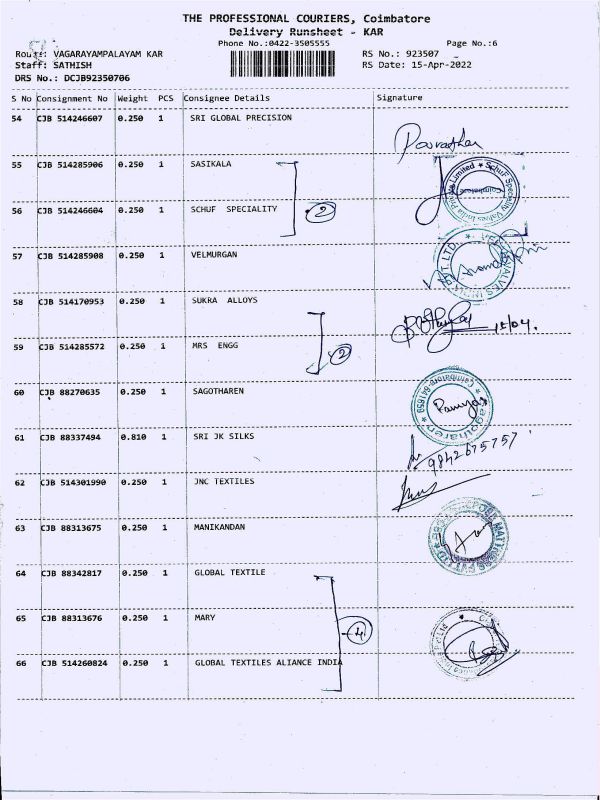 THE PROFESSIONAL COURIERS, Coimbatore
Delivery Runsheet - KAR
Phone No.:0422-3505555
Page No.:6
Route: VAGARAYAMPALAYAM KAR
RS No.: 923507
Staff: SATHISH
RS Date: 15-Apr-2022
DRS No.: DCJB92350706
S No Consignment No Weight PCS Consignee Details Signature
54 CJB 514246607 0.250 1 SRI GLOBAL PRECISION
55 CJB 514285906 0.250 1 SASIKALA
56 CJB 514246604 0.250 1 SCHUF SPECIALITY
2
57 CJB 514285908 0.250 1 VELMURGAN
58 CJB 514170953 0.250 1 SUKRA ALLOYS
59 CJB 514285572 0.250 1 MRS ENGG
2
60 CJB 88270635 0.250 1 SAGOTHAREN
61 CJB 88337494 0.810 1 SRI JK SILKS
9842675757
62 CJB 514301990 0.250 1 JNC TEXTILES
63 CJB 88313675 0.250 1 MANIKANDAN
64 CJB 88342817 0.250 1 GLOBAL TEXTILE
65 CJB 88313676 0.250 1 MARY
4
66 CJB 514260824 0.250 1 GLOBAL TEXTILES ALIANCE INDIA